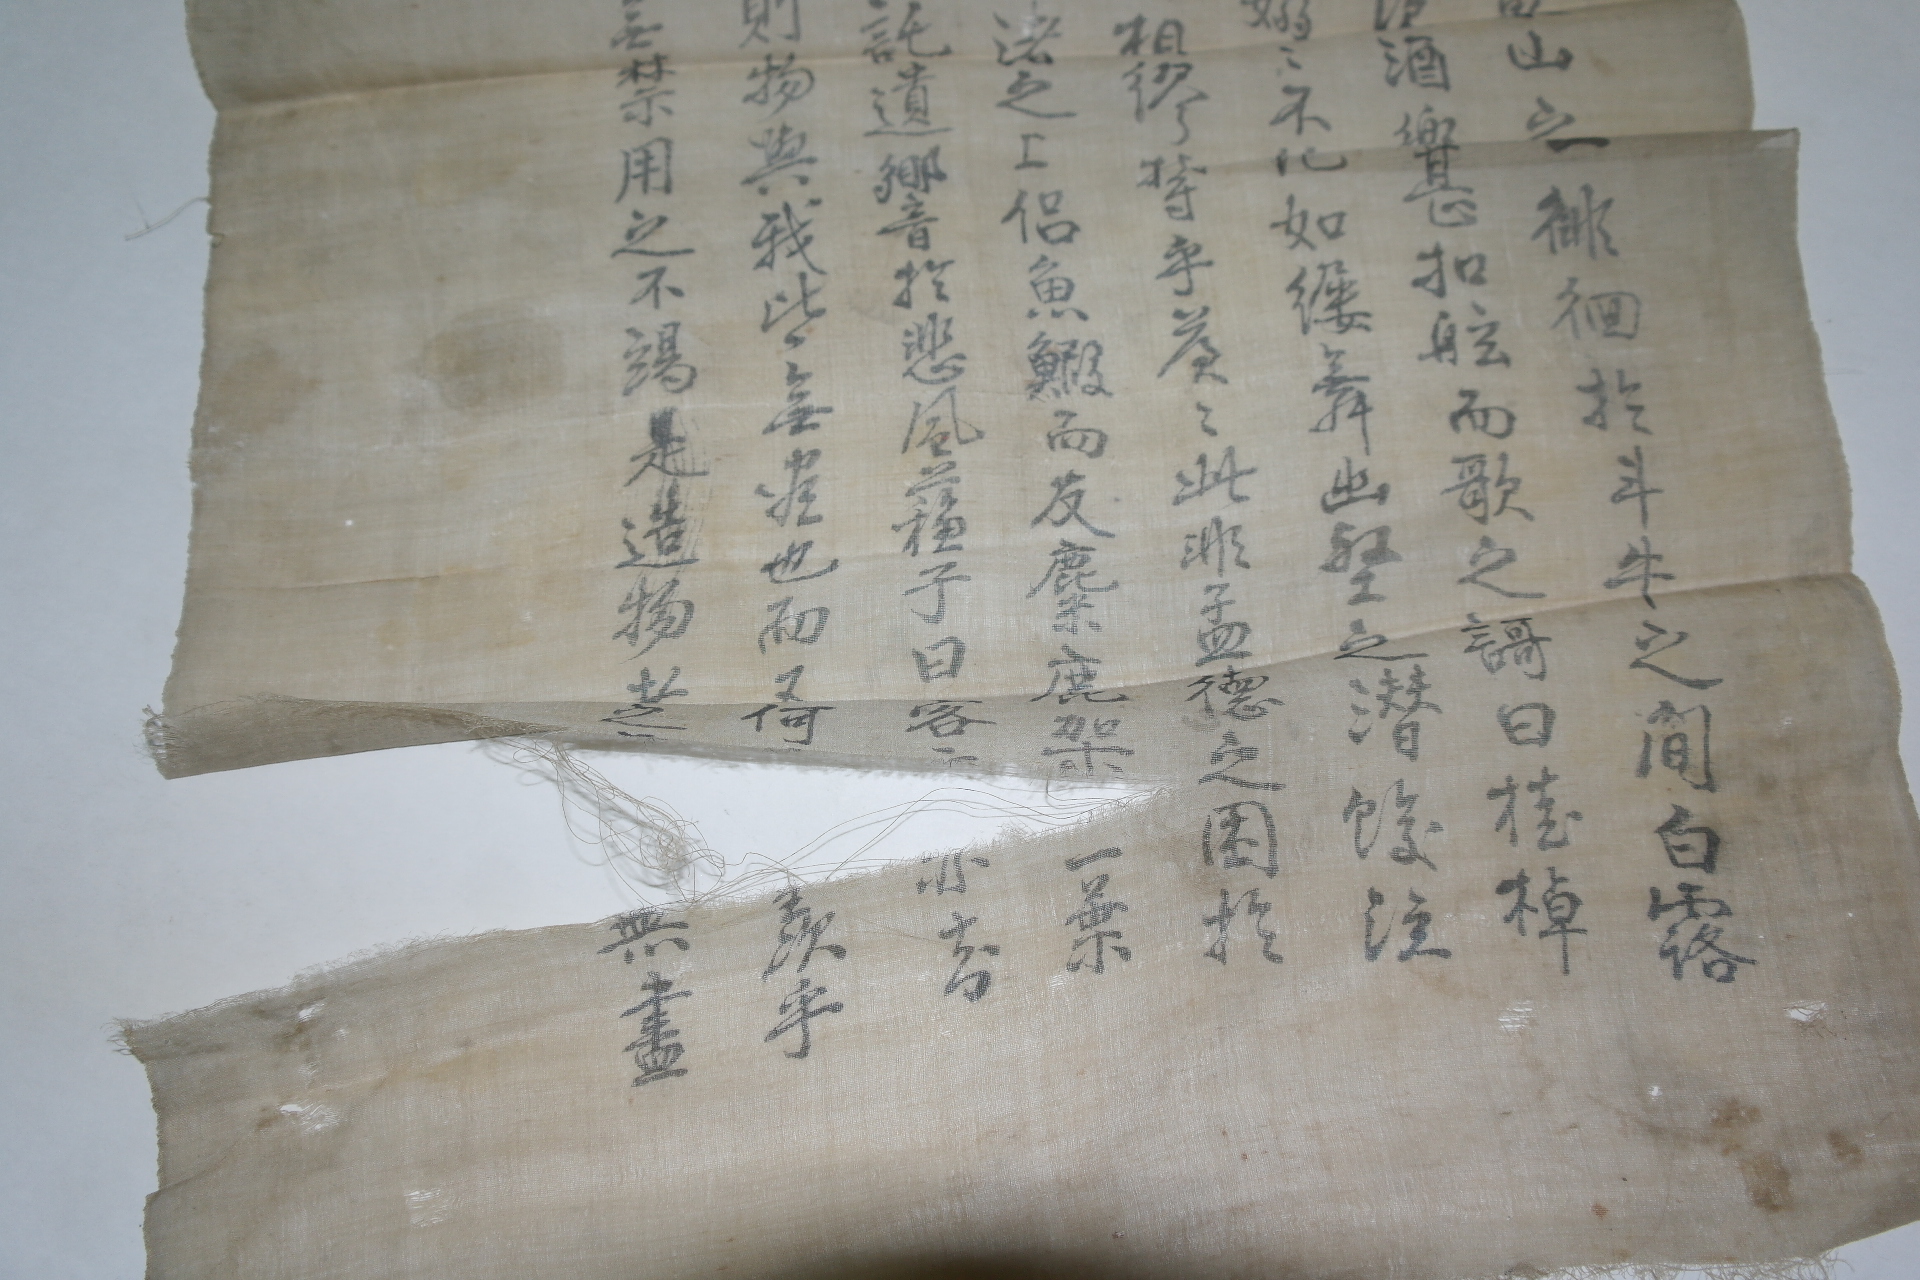 山之徘徊於斗牛之間白露
酒樂甚扣舷而歌之謌曰桂棹
嫋〻不化如縷舞幽壑之潜蛟泣
相繆兮欝乎蒼〻此非孟德之困於
渚之上侶魚鰕而友麋鹿架一葉
託遺響音於悲風蘓子曰客亦
則物與我皆無盡也而又何羨乎
無禁用之不竭是造物者之無盡